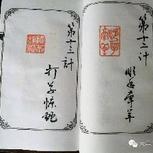 第十二计
顺手牵羊
第十三计
打草惊蛇